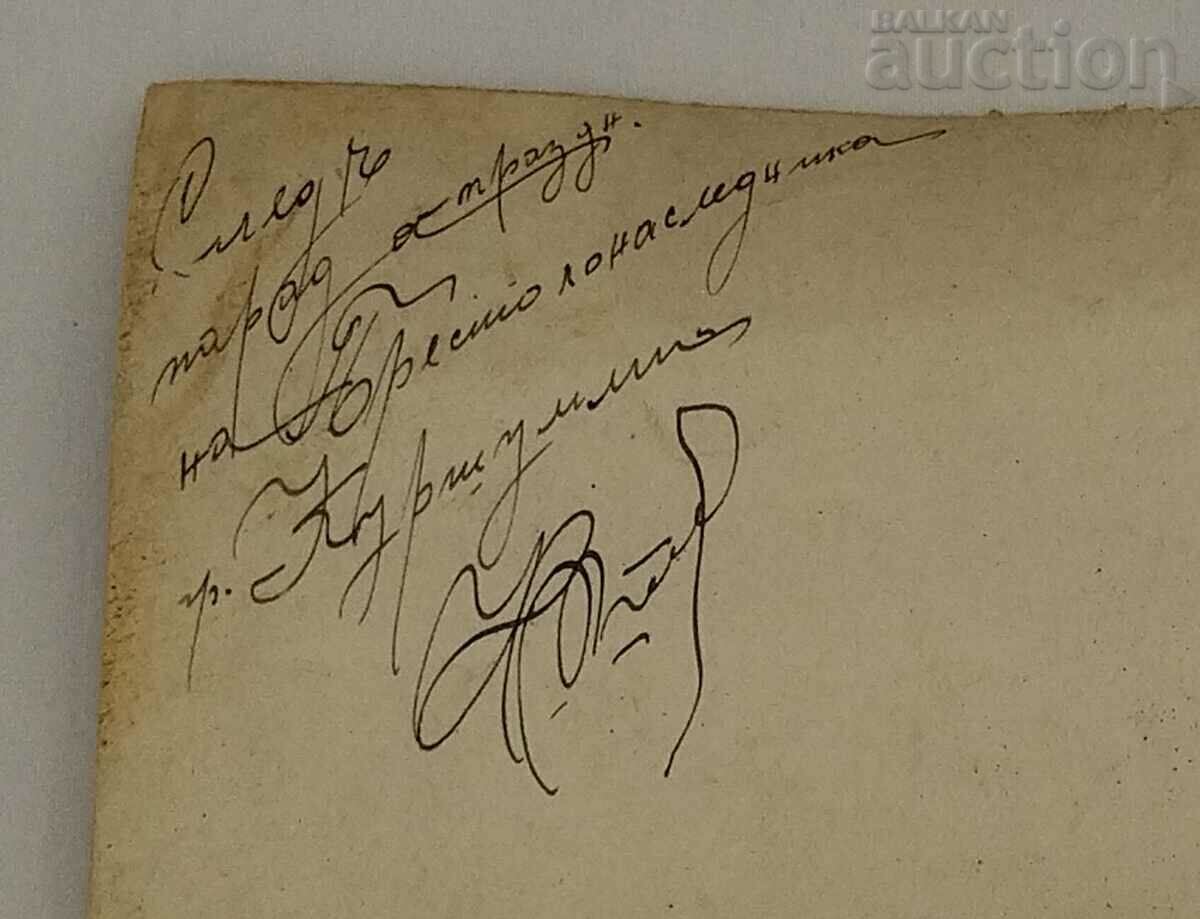 BALKAN
auction
Следъ
парада праздн.
на Престолонаследника
гр. Куршумлия